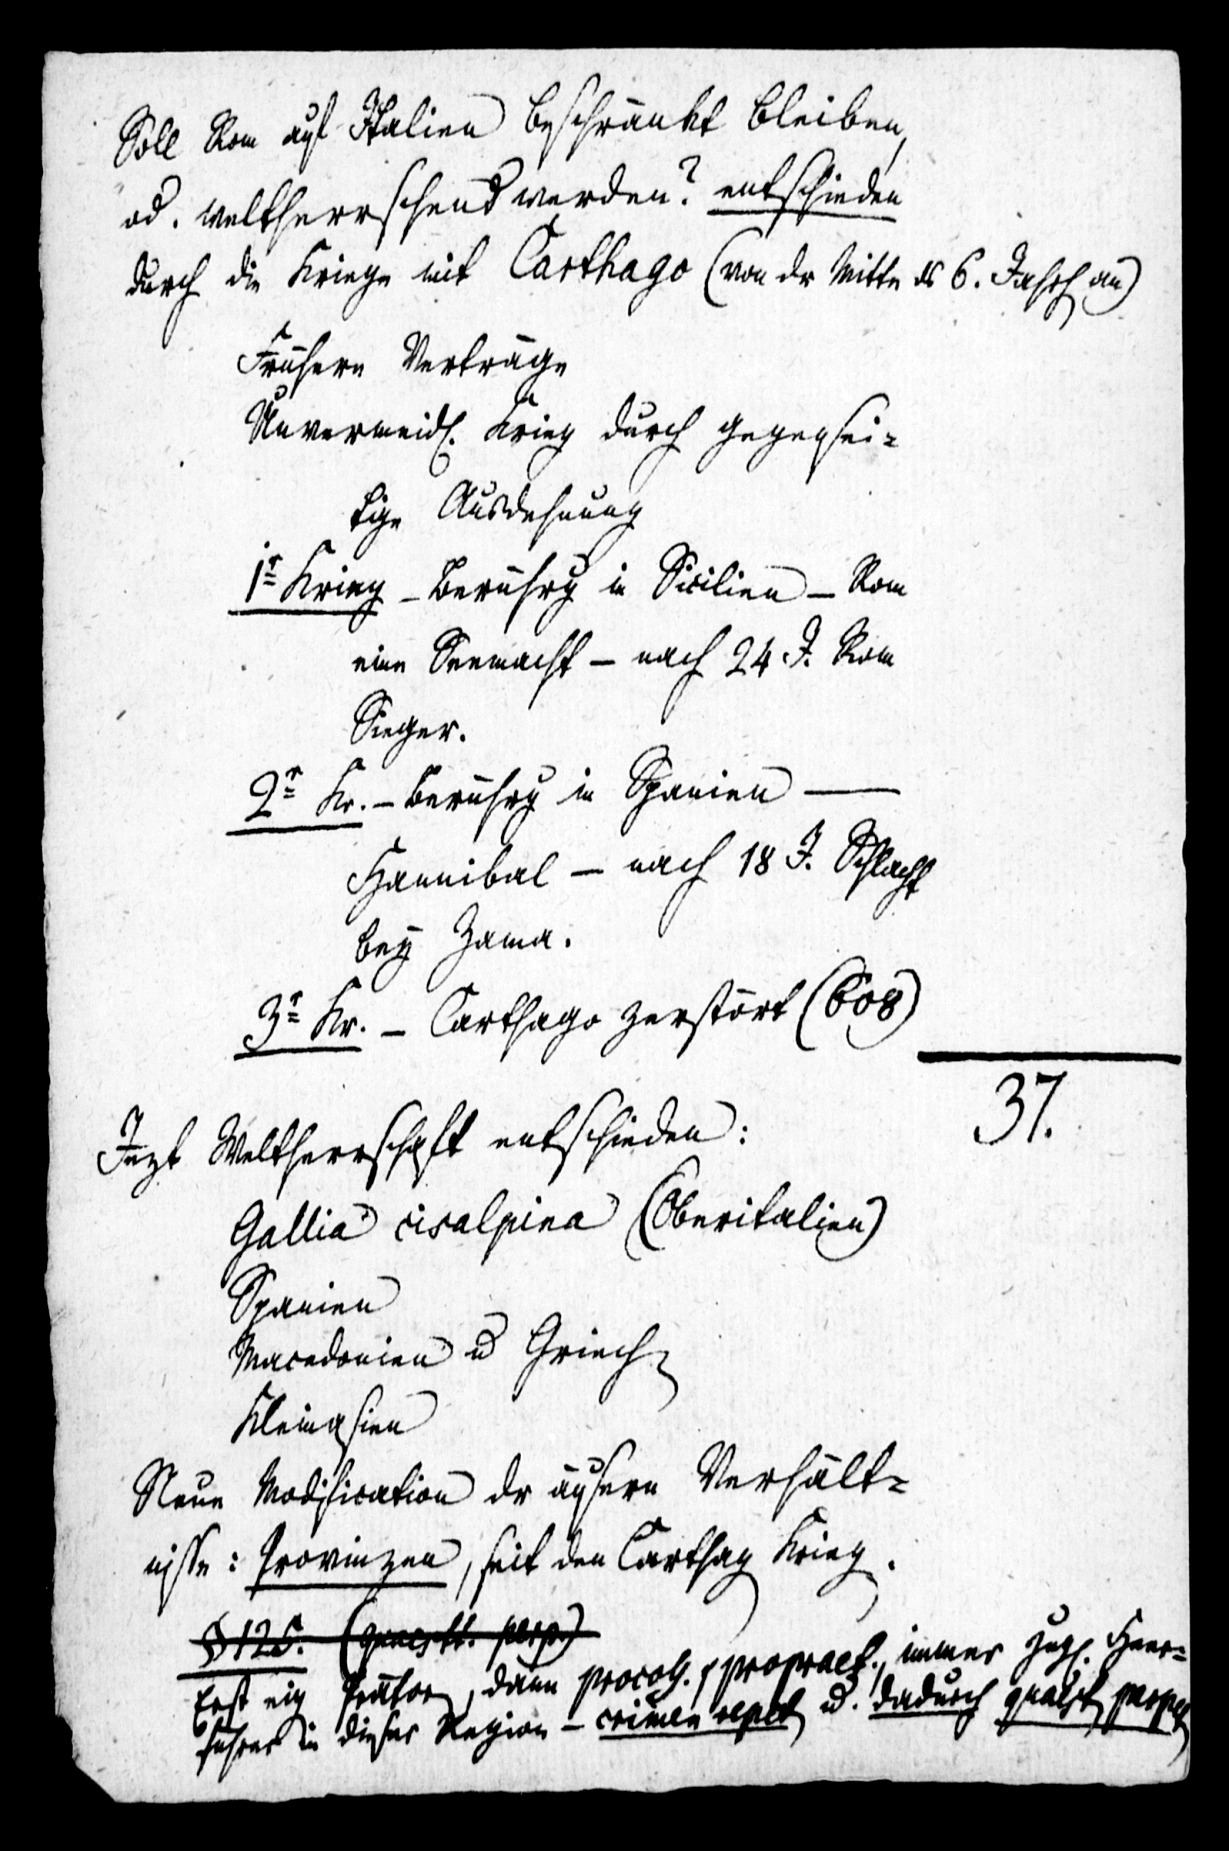 Soll Rom auf Italien beschränkt bleiben,
od. weltherrschend werden? entschieden
durch die Kriege mit Carthago (von dr Mitte ds 6. Jahrh an)
Frühere Verträge
Unvermeidl. Krieg durch gegensei-
tige Ausdehnung
1r Krieg – Berührg in Sicilien – Rom
eine Seemacht – nach 24 J. Rom
Sieger.
2r Kr. – Berührg in Spanien —
Hannibal – nach 18 J. Schlacht
bey Zama.
3r Kr. – Carthago zerstört (608)
37.
Jezt Weltherrschaft entschieden:
Gallia cisalpina (Oberitalien)
Spanien
Macedonien u Griech
Kleinasien
Neue Modification dr äusern Verhält-
nisse: Provinzen, seit den Carthag Krieg.
§ 125. (quaestt. perp)
Erst eig Prätor, dann procos. / propraet., immer zugl. Heer-
führer in dieser Region – crimen repet u. dadurch quaest perpet